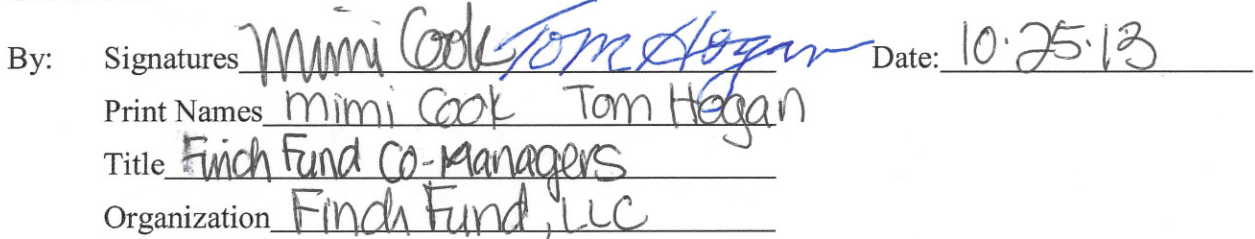 By: Signatures Mimi Cook Tom Hogan Date: 10.25.13
Print Names Mimi Cook Tom Hogan
Title Finch Fund Co-Managers
Organization Finch Fund, LLC